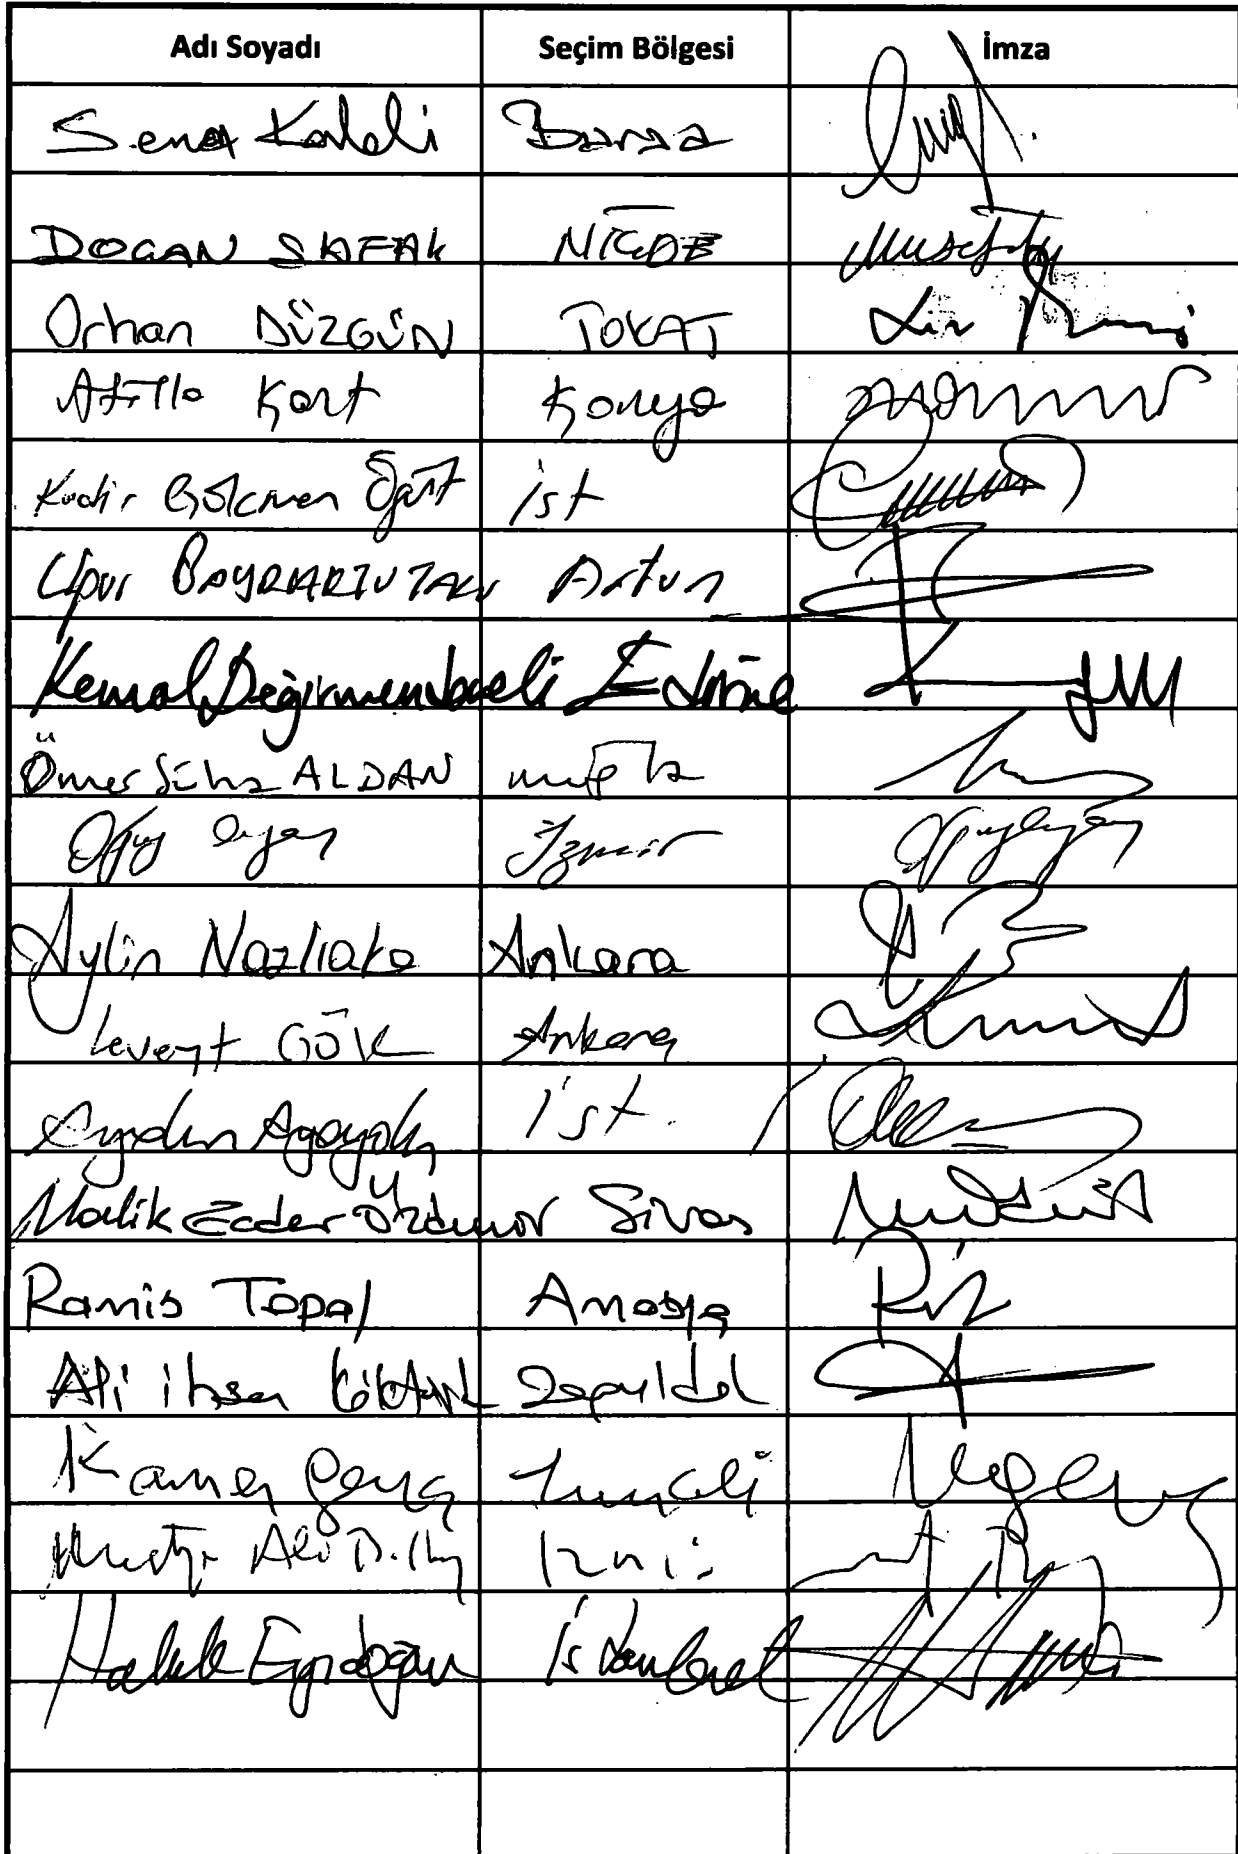 Adı Soyadı Seçim Bölgesi İmza
Sena Kaleli Bursa
DOĞAN ŞAFAK NİĞDE
Orhan DÜZGÜN TOKAT
Atilla Kart Konya
Kadir Gökmen Öğüt ist
Uğur BAYRAKTUTAN Artvin
Kemal Değirmendereli Edirne
Ömer Süha ALDAN muğla
Oğuz Oyan İzmir
Aylin Nazlıaka Ankara
Levent GÖK Ankara
Aydın Ağayolu ist.
Malik Ecder Özdemir Sivas
Ramis Topal Amasya
Ali ihsan KÖKTÜRK Zonguldak
Kamer Genç Tunceli
Ali İzmir
Haluk Eyidoğan istanbul